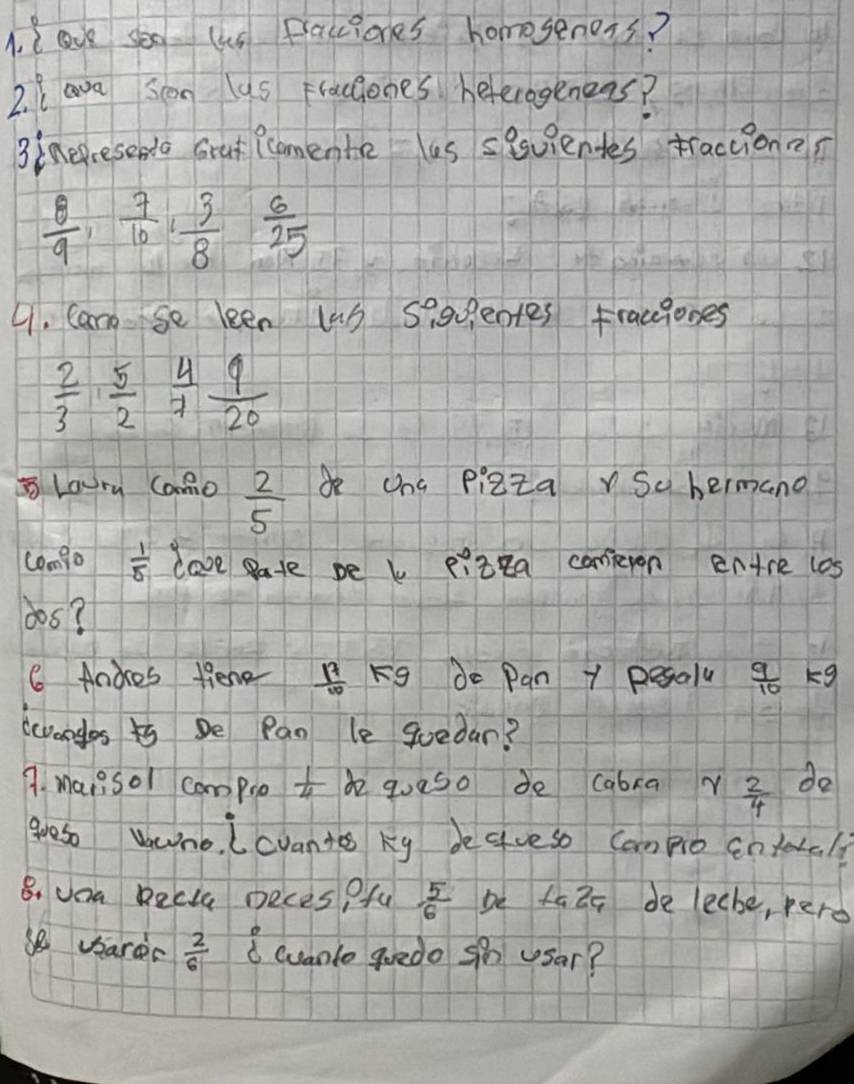 1. ¿ Que son las fracciones homogeneas?
2. ¿ que son las fracciones heterogeneas?
3 ¿ Represento Graficamente las siguientes fracciones
8/9, 7/10, 3/8 6/25
4. Como se leen las siguientes fracciones
2/3, 5/2 4/7 9/20
5 Laura comio 2/5 de una Pizza y su hermano
comio 1/5 ¿que parte De la Pizza comieron entre los
dos?
6 Andres tiene 17/10 kg de Pan y regala 9/10 kg
¿cuandos kg De Pan le quedan?
7. Marisol compro de queso de cabra y 2/4 de
queso vacuno. ¿ cuantos Kg de queso compro en total?
8. una Receta necesita 5/6 De taza de leche, pero
se usaron 2/6 ¿ cuanto quedo sin usar?